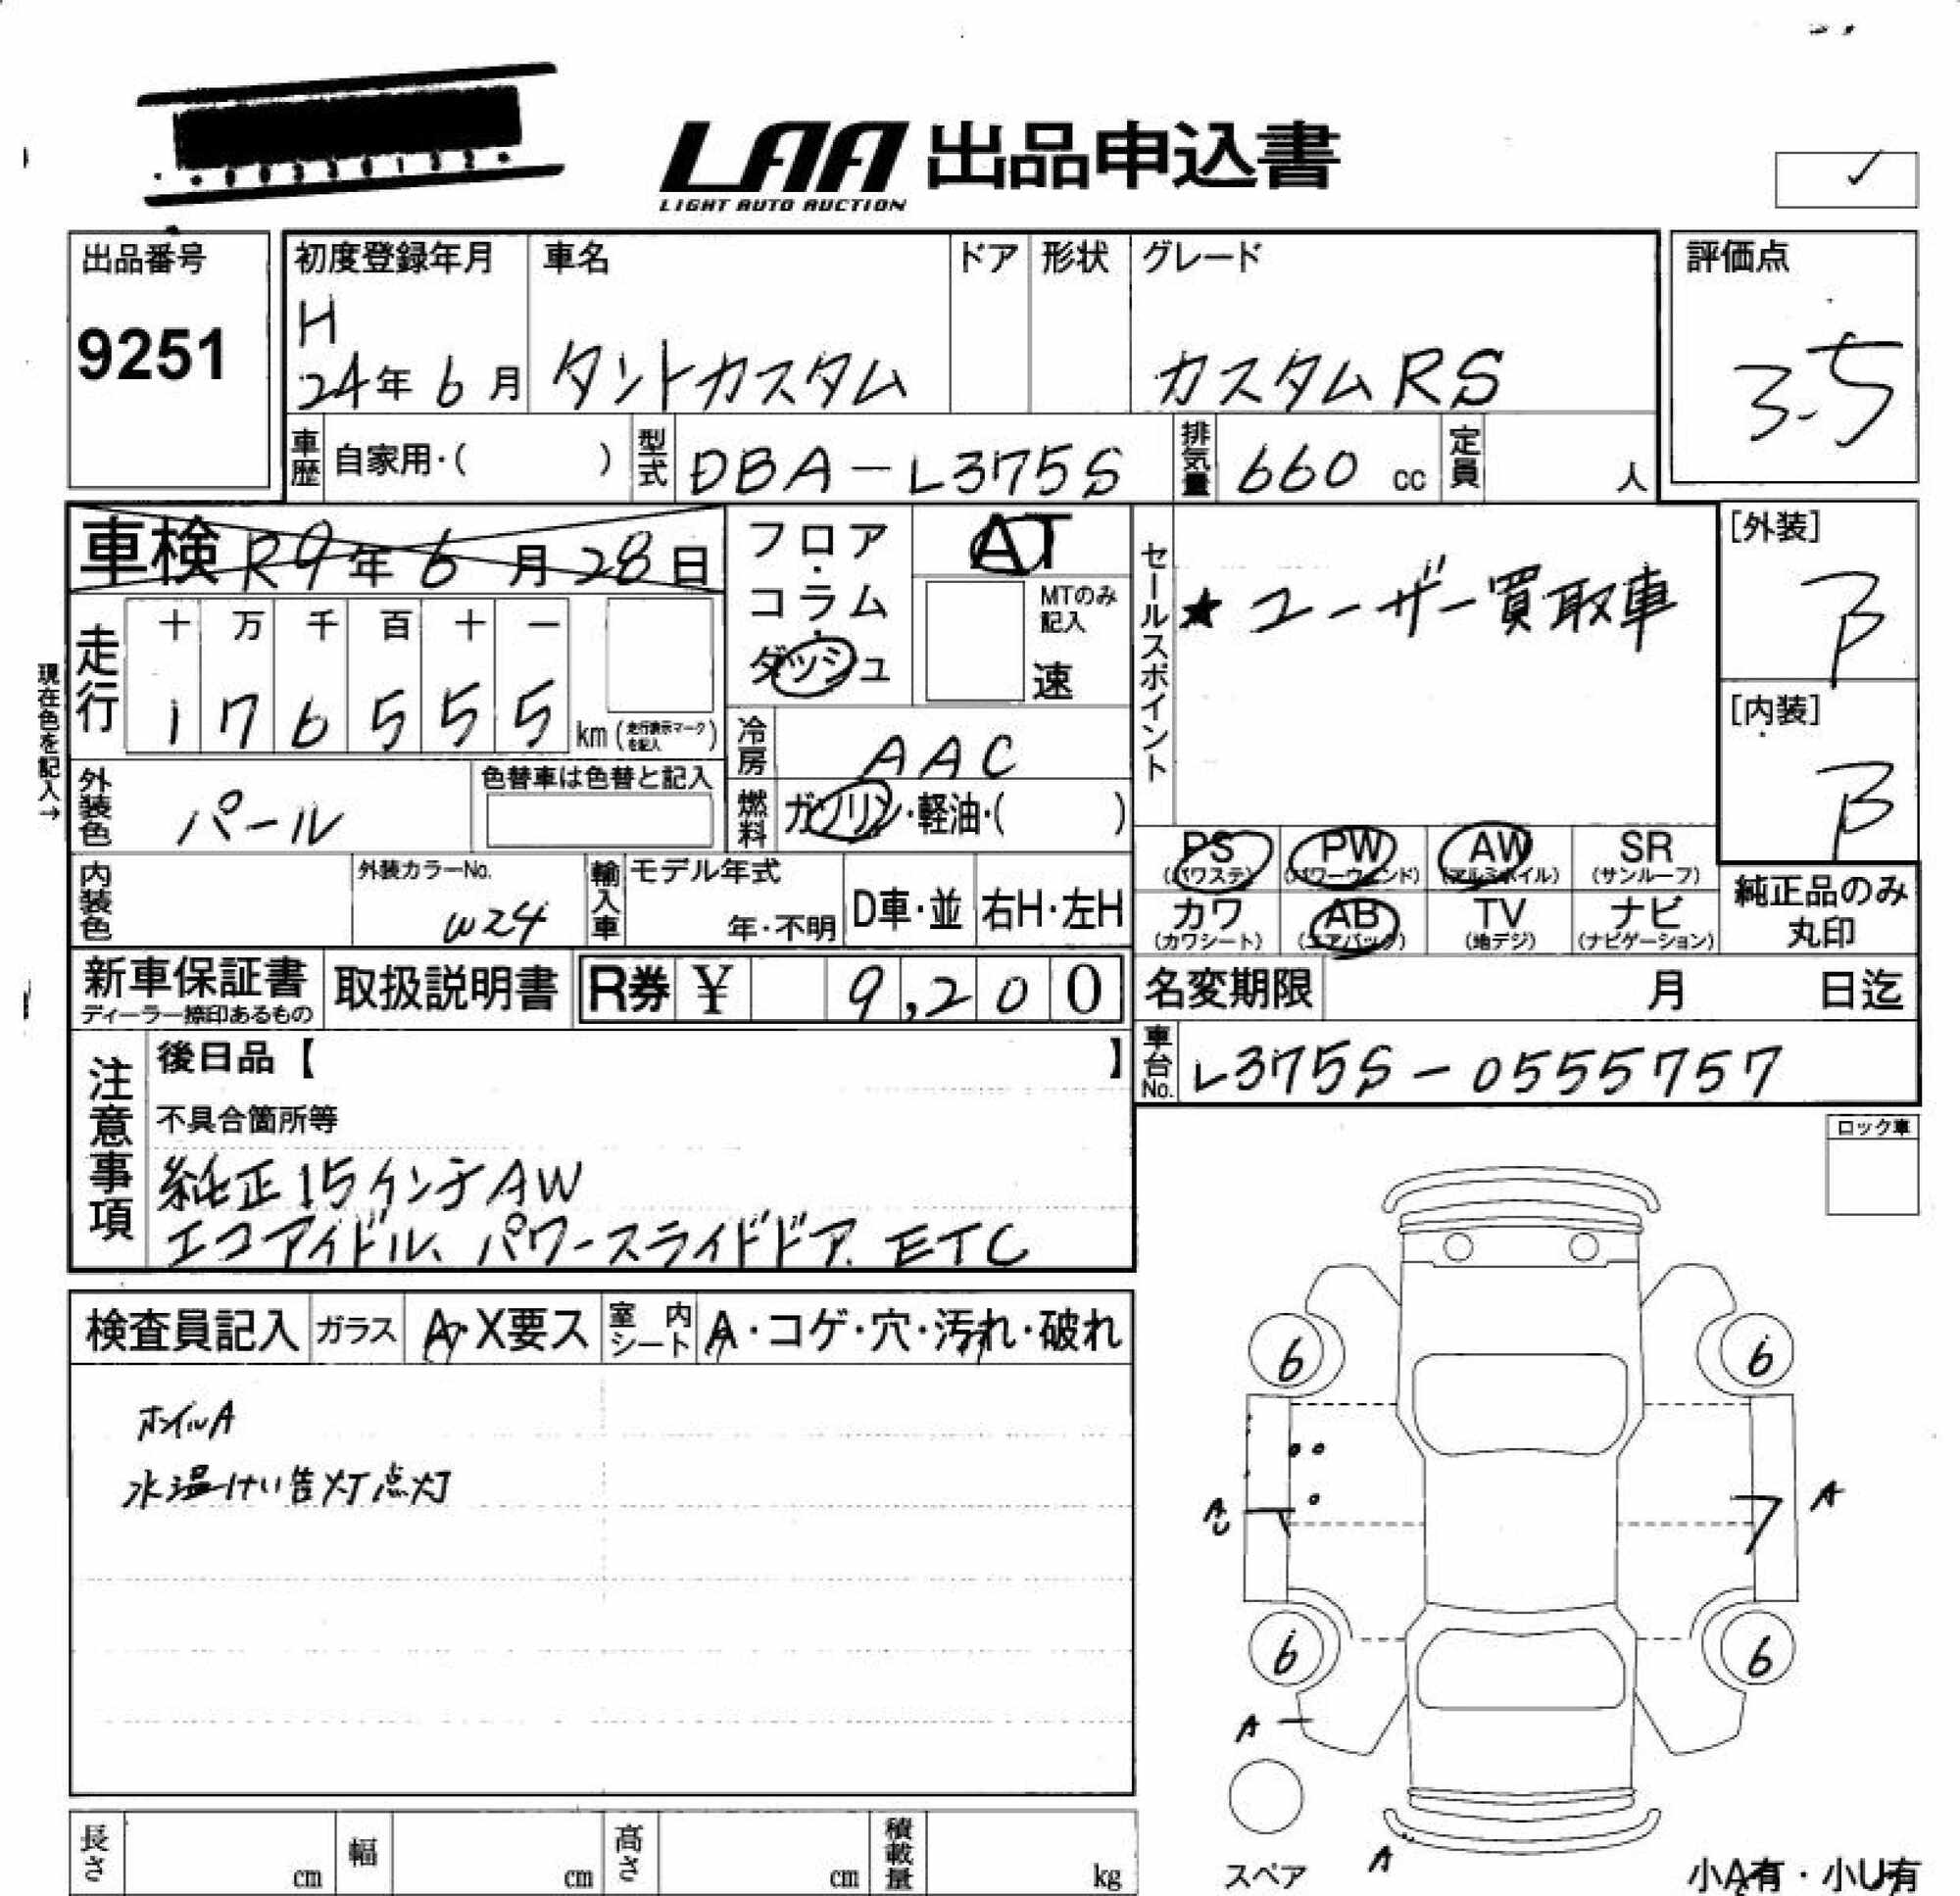 LAA 出品申込書
LIGHT AUTO AUCTION
出品番号
9251
初度登録年月
H
24年 6月
車名
タントカスタム
ドア
形状
グレード
カスタムRS
評価点
3.5
車歴
自家用・( )
型式
DBA-L375S
排気量
660 cc
定員
人
車検 R9年 6月 28日
フロア・
コラム・
ダッシュ
AT
MTのみ
記入
速
セールスポイント
★ユーザー買取車
[外装]
B
[内装]
B
現在色を記入→
走行
十 万 千 百 十 一
1 7 6 5 5 5
km(走行表示マークを記入)
冷房
AAC
外装色
パール
色替車は色替と記入
燃料
ガソリン・軽油・( )
PS
(パワステ)
PW
(パワーウィンド)
AW
(アルミホイル)
SR
(サンルーフ)
カワ
(カワシート)
AB
(エアバック)
TV
(地デジ)
ナビ
(ナビゲーション)
純正品のみ
丸印
内装色
外装カラーNo.
W24
輸入車
モデル年式
年・不明
D車・並
右H・左H
新車保証書
ディーラー捺印あるもの
取扱説明書
R券 ¥ 9,200
名変期限 月 日迄
車台No.
L375S-0555757
注意事項
後日品【 】
不具合箇所等
純正15インチAW
エコアイドル、パワースライドドア、ETC
ロック車
検査員記入
ガラス
A・X要ス
室内シート
A・コゲ・穴・汚れ・破れ
ホイルA
水温けい告灯点灯
6 6
A
U
A
6 6
A
A
スペア
小A有・小U有
長さ cm
幅 cm
高さ cm
積載量 kg